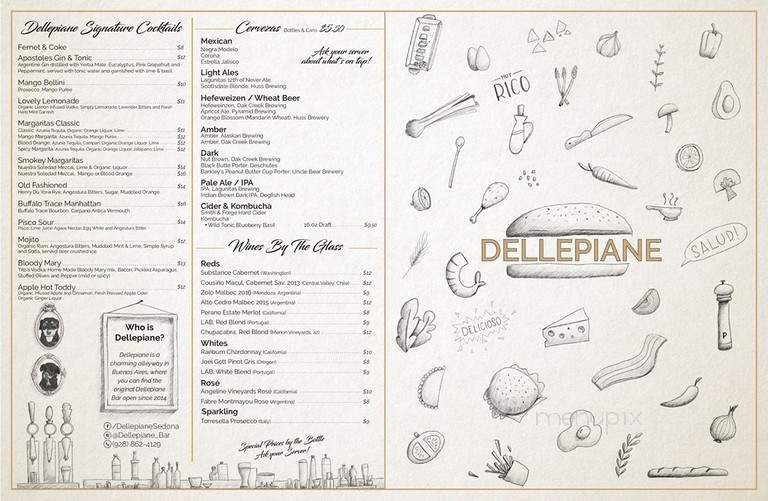 Dellepiane Signature Cocktails
Fernet & Coke $8
Apostoles Gin & Tonic $12
Argentine Gin distilled with Yerba Mate, Eucalyptus, Pink Grapefruit and
Peppermint, served with tonic water and garnished with lime & basil.
Mango Bellini $10
Prosecco, Mango Puree
Lovely Lemonade $11
Organic Lemon Infused Vodka, Simply Lemonade, Lavender Bitters and Fresh
Herb/Mint Garnish
Margaritas Classic
Classic: Azunia Tequila, Organic Orange Liqueur, Lime $11
Mango Margarita: Azunia Tequila, Mango Puree $12
Blood Orange: Azunia Tequila, Campari, Organic Orange Liqueur, Lime $12
Spicy Margarita: Azunia Tequila, Organic Orange Liqueur, Jalapeno, Lime $12
Smokey Margaritas
Nuestra Soledad Mezcal, Lime & Organic Liqueur $14
Nuestra Soledad Mezcal, Mango or Blood Orange $16
Old Fashioned $14
Henry Du Yore Rye, Angostura Bitters, Sugar, Muddled Orange
Buffalo Trace Manhattan $16
Buffalo Trace Bourbon, Carpano Antica Vermouth
Pisco Sour $14
Pisco, Lime Juice, Agave Nectar, Egg White and Angostura Bitters
Mojito $12
Organic Rum, Angostura Bitters, Muddled Mint & Lime, Simple Syrup
and Soda, served over crushed ice.
Bloody Mary $13
Tito's Vodka, Home Made Bloody Mary mix, Bacon, Pickled Asparagus,
Stuffed Olives and Pepper (mild or spicy)
Apple Hot Toddy $12
Organic Infused Apple and Cinnamon, Fresh Pressed Apple Cider
Organic Ginger Liquor
Who is
Dellepiane?
Dellepiane is a
charming alleyway in
Buenos Aires, where
you can find the
original Dellepiane
Bar open since 2014.
/DellepianeSedona
@Dellepiane_Bar
(928) 862-4129
Cervezas Bottles & Cans $5.50
Ask your server
about what's on tap!
Mexican
Negra Modelo
Corona
Estrella Jalisco
Light Ales
Lagunitas 12th of Never Ale
Scottsdale Blonde, Huss Brewing
Hefeweizen / Wheat Beer
Hefeweinzen, Oak Creek Brewing
Apricot Ale, Pyramid Brewing
Orange Blossom (Mandarin Wheat), Huss Brewery
Amber
Amber, Alaskan Brewing
Amber, Oak Creek Brewing
Dark
Nut Brown, Oak Creek Brewing
Black Butte Porter, Deschutes
Barkley's Peanut Butter Cup Porter, Uncle Bear Brewery
Pale Ale / IPA
IPA, Lagunitas Brewing
Indian Brown Dark IPA, Dogfish Head
Cider & Kombucha
Smith & Forge Hard Cider
Kombucha
• Wild Tonic Blueberry Basil 16 oz Draft $9.50
Wines By The Glass
Reds
Substance Cabernet (Washington) $12
Cousiño Macul, Cabernet Sav. 2013 (Central Valley, Chile) $12
Zolo Malbec 2016 (Mendoza, Argentina) $9
Alto Cedro Malbec 2015 (Argentina) $12
Perano Estate Merlot (California) $8
LAB, Red Blend (Portugal) $9
Chupacabra, Red Blend (Merkin Vineyards, az) $12
Whites
Raeburn Chardonnay (California) $10
Joel Gott Pinot Gris (Oregon) $8
LAB, White Blend (Portugal) $9
Rosé
Angeline Vineyards Rosé (California) $10
Fabre Montmayou Rose (Argentina) $8
Sparkling
Torresella Prosecco (Italy) $9
Special Prices by the Bottle
Ask your Server!
MUY
RICO
DELLEPIANE
SALUD!
DELICIOSO
P
menupix